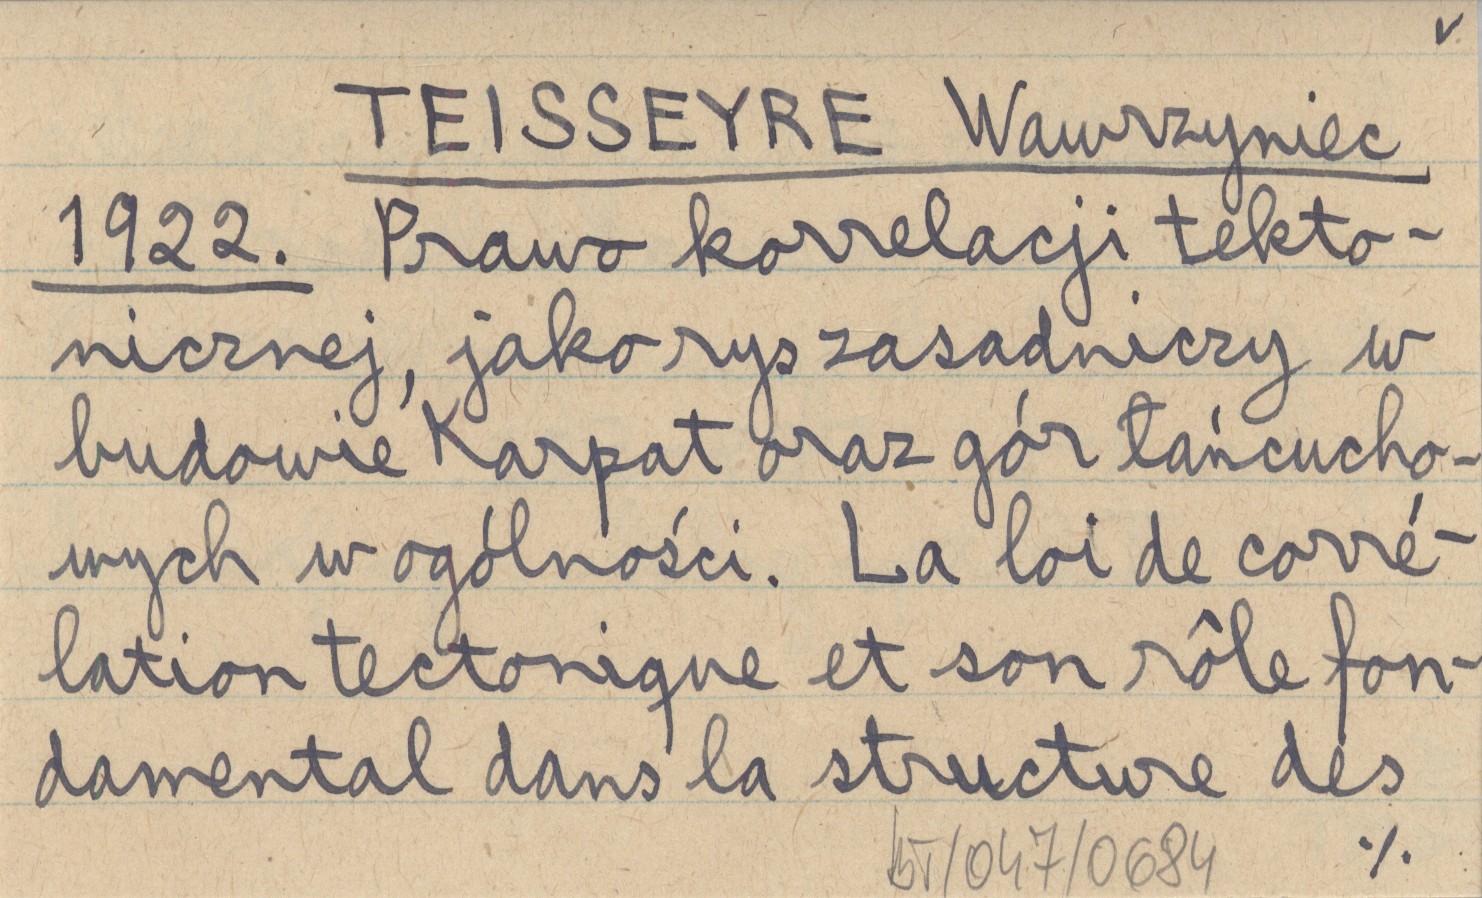 v
TEISSEYRE Wawrzyniec
1922. Prawo korrelacji tekto-
nicznej, jako rys zasadniczy w
budowie Karpat oraz gór łańcucho-
wych w ogólności. La loi de corré-
lation tectonique et son rôle fon-
damental dans la structure des
BT/047/0684 ./.